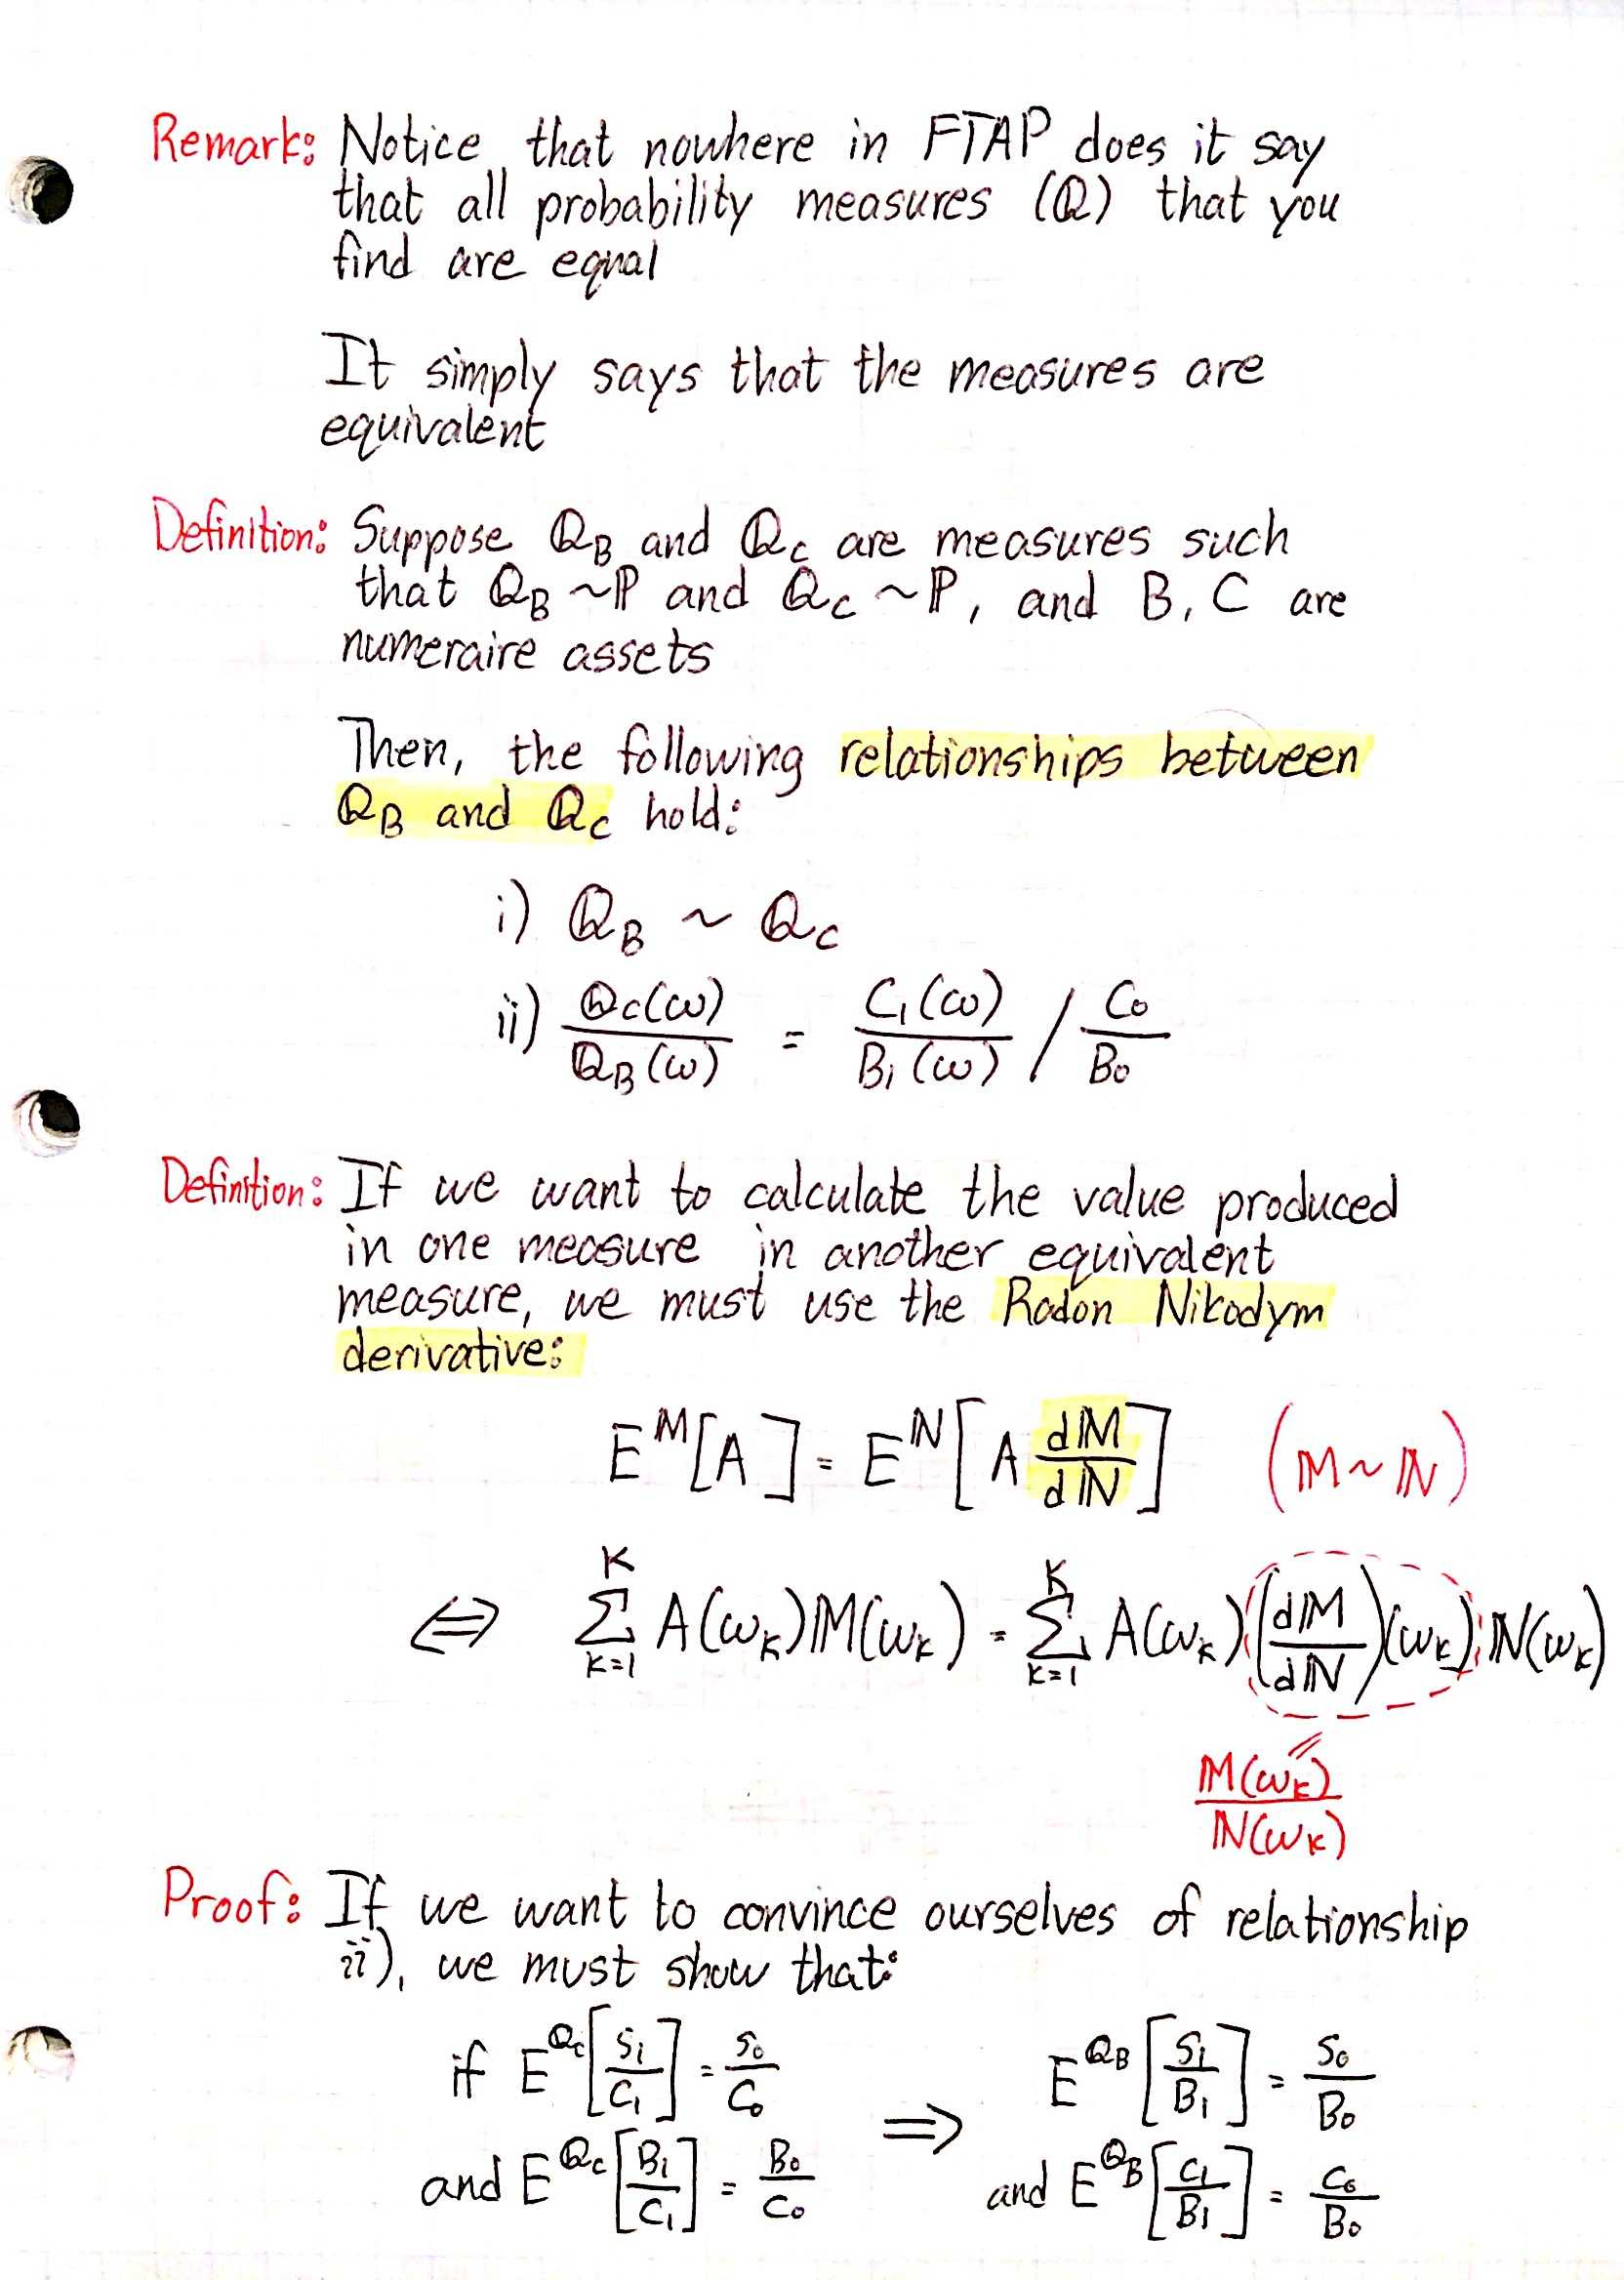 Remark: Notice that nowhere in FTAP does it say
that all probability measures (ℚ) that you
find are equal
It simply says that the measures are
equivalent
Definition: Suppose ℚ_B and ℚ_C are measures such
that ℚ_B ~ ℙ and ℚ_C ~ ℙ, and B, C are
numeraire assets
Then, the following relationships between
ℚ_B and ℚ_C hold:
i) ℚ_B ~ ℚ_C
ii) ℚ_C(ω)/ℚ_B(ω) = C₁(ω)/B₁(ω) / C₀/B₀
Definition: If we want to calculate the value produced
in one measure in another equivalent
measure, we must use the Radon Nikodym
derivative:
E^𝕄[A] = E^ℕ[A d𝕄/dℕ] (𝕄 ~ ℕ)
⇔ Σ_{k=1}^{K} A(ω_k)𝕄(ω_k) = Σ_{k=1}^{K} A(ω_k)(d𝕄/dℕ)(ω_k)ℕ(ω_k)
𝕄(ω_k)/ℕ(ω_k)
Proof: If we want to convince ourselves of relationship
ii), we must show that:
if E^{ℚ_C}[S₁/C₁] = S₀/C₀ ⇒ E^{ℚ_B}[S₁/B₁] = S₀/B₀
and E^{ℚ_C}[B₁/C₁] = B₀/C₀ and E^{ℚ_B}[C₁/B₁] = C₀/B₀